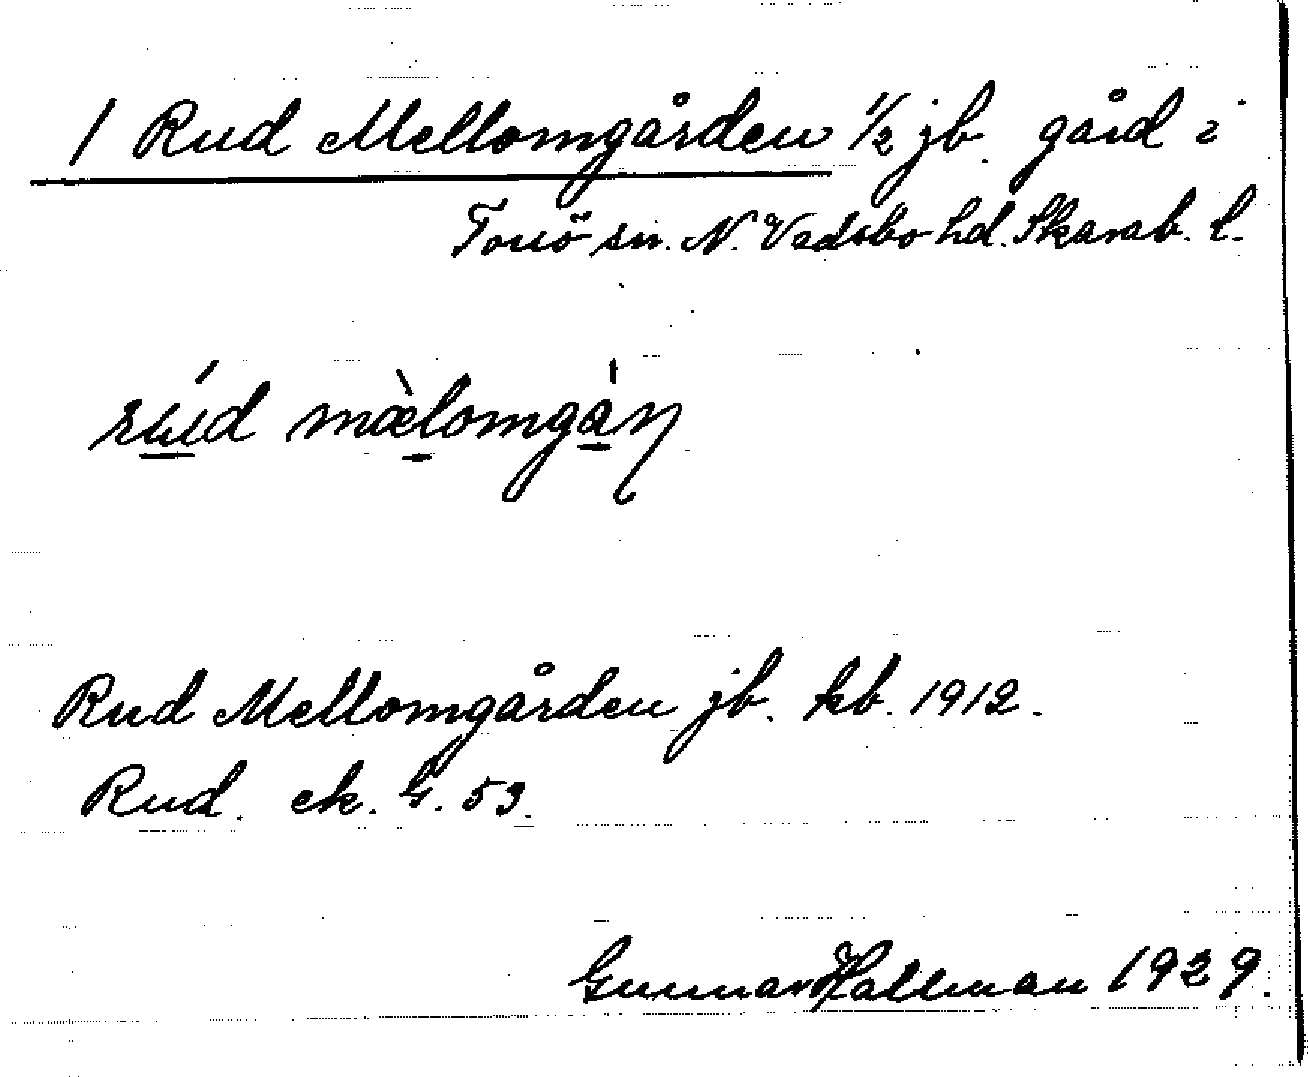 1 Rud Mellomgården 1/2 jb. gård i
Torsö sn. N. Vadsbo hd. Skarab. l.
rúd mæ̀lomgán
Rud Mellomgården jb. kb. 1912.
Rud. ek. G. 53.
Gunnar Hallman 1929.